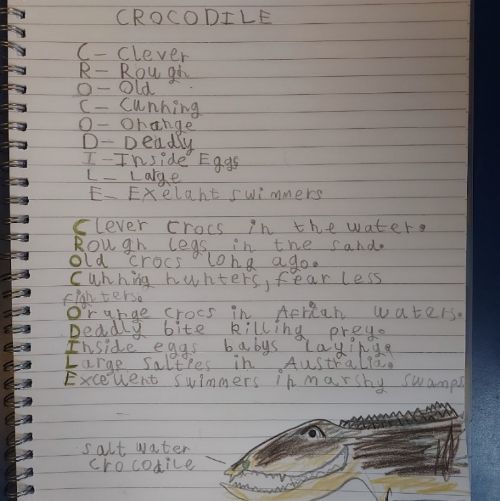 CROCODILE
C - Clever
R - Rough
O - Old
C - Cunning
O - Orange
D - Deadly
I - Inside Eggs
L - Large
E - Exelant swimmers
Clever crocs in the water.
Rough legs in the sand.
Old crocs long ago.
Cunning hunters, fear less
fighters.
Orange crocs in African waters.
Deadly bite killing prey.
Inside eggs babys laying.
Large salties in Australia.
Excellent swimmers in marshy swamps
salt water
crocodile